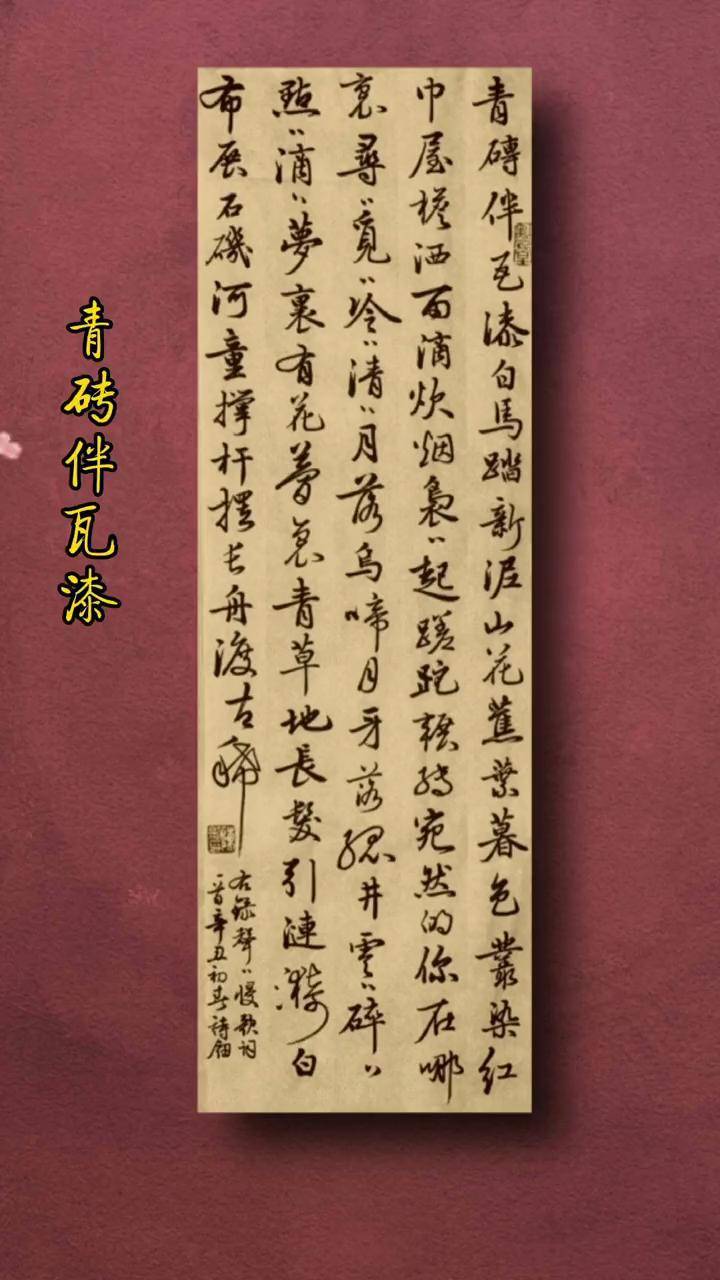 青砖伴瓦漆
青磚伴瓦漆白馬踏新泥山花蕉葉暮色叢染紅
巾屋檐洒雨滴炊烟裊〻起蹉跎輾轉宛然的你在哪
裏尋〻覓〻冷〻清〻月落烏啼月牙落孤井零〻碎〻
點〻滴〻夢裏有花夢裏青草地長髮引漣漪白
布展石磯河童撑杆摆长舟渡古稀
右録聲〻慢歌詞
一首辛丑初春詩